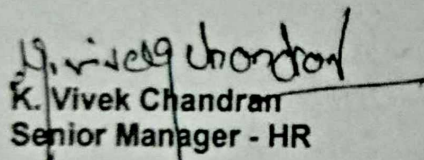 K. Vivek Chandran
K. Vivek Chandran
Senior Manager - HR